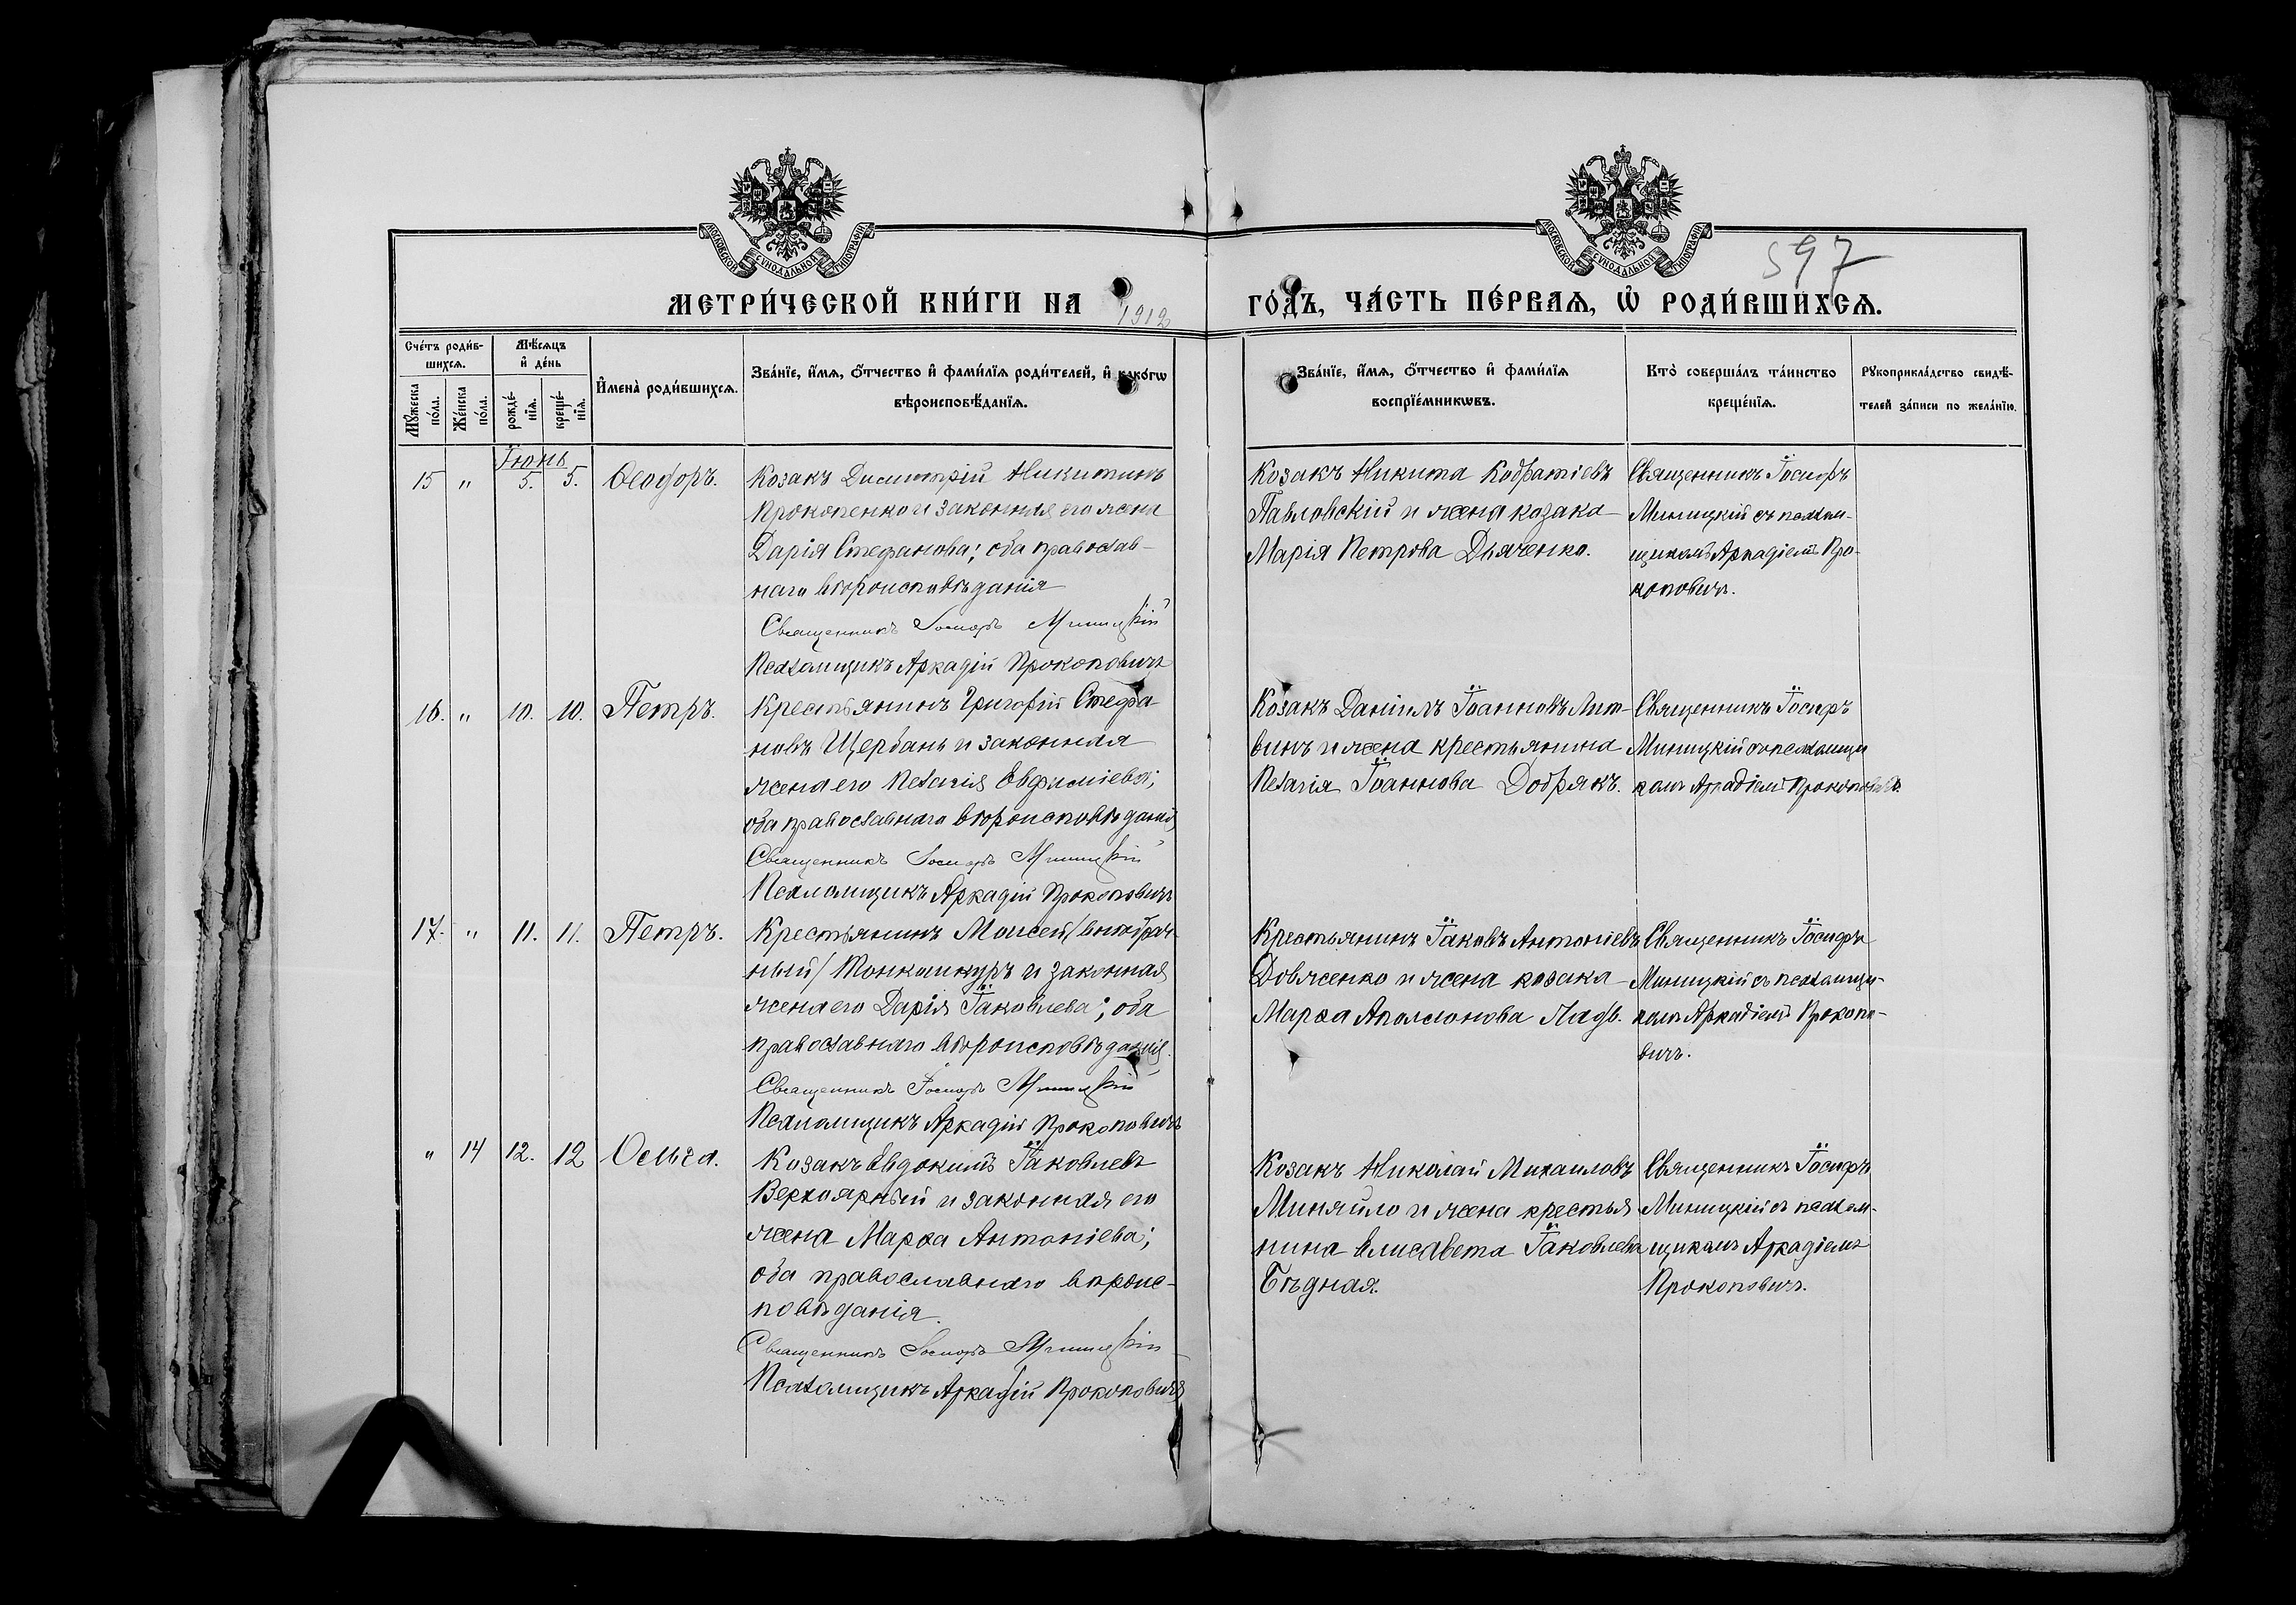 597
МЕТРИ́ЧЕСКОЙ КНИ́ГИ НА 1912
ГО́ДЪ, ЧА́СТЬ ПЕ́РВАѦ, Ѡ҆ РОДИ́ВШИХСѦ.
МОСКОВСКОЙ СѴНОДАЛЬНОЙ ТИПОГРАФІИ
МОСКОВСКОЙ СѴНОДАЛЬНОЙ ТИПОГРАФІИ
Сче́тъ роди́в-
шихсѧ.
Мꙋ́жеска по́ла.
Же́нска по́ла.
Мѣ́сѧцъ
и҆ де́нь
рожде́-
нїѧ.
креще́-
нїѧ.
И҆мена̀ роди́вшихсѧ.
Зва́нїе, и҆́мѧ, ѻ҆́тчество и҆ фами́лїѧ роди́телей, и҆ како́гѡ
вѣроисповѣ́данїѧ.
Зва́нїе, и҆́мѧ, ѻ҆́тчество и҆ фами́лїѧ
воспрїе́мникѡвъ.
Кто̀ соверша́лъ та́инство
креще́нїѧ.
Рꙋкоприкла́дство свидѣ́-
телей за́писи по жела́нїю.
Іюнь
15 " 5. 5. Ѳеодоръ.
Козакъ Димитрій Никитинъ
Прокопенко и законная его жена
Дарія Стефанова; оба православ-
наго вѣроисповѣданія
Священникъ Іосифъ Миницкій
Псаломщикъ Аркадій Прокоповичъ
Козакъ Никита Кодратіевъ
Павловскій и жена козака
Марія Петрова Дяченко.
Священникъ Іосифъ
Миницкій съ псалом-
щикомъ Аркадіемъ Про-
коповичъ.
16. " 10. 10. Петръ.
Крестьянинъ Григорій Стефа-
новъ Щербань и законная
жена его Пелагія Евфиміева;
оба православнаго вѣроисповѣданія
Священникъ Іосифъ Миницкій
Псаломщикъ Аркадій Прокоповичъ
Козакъ Даніилъ Іоанновъ Лит-
винъ и жена крестьянина
Пелагія Іоаннова Добрякъ.
Священникъ Іосифъ
Миницкій съ псаломщи
комъ Аркадіемъ Прокоповичъ.
17. " 11. 11. Петръ.
Крестьянинъ Моисей /внѣбрач-
ный/ Тонкошкуръ и законная
жена его Дарія Іаковлева; оба
православнаго вѣроисповѣданія.
Священникъ Іосифъ Миницкій
Псаломщикъ Аркадій Прокоповичъ
Крестьянинъ Іаковъ Антоніевъ
Довженко и жена козака
Марѳа Аполонова
Священникъ Іосифъ
Миницкій съ псаломщи-
комъ Аркадіемъ Прокопо-
вичъ.
" 14 12. 12 Ольга.
Козакъ Евдокимъ Іаковлевъ
Верхоярный и законная его
жена Марѳа Антоніева;
оба православнаго вѣроис-
повѣданія.
Священникъ Іосифъ Миницкій
Псаломщикъ Аркадій Прокоповичъ
Козакъ Николай Михаиловъ
Миняйло и жена крестья
нина Елисавета Іаковлева
Бѣдная.
Священникъ Іосифъ
Миницкій съ псалом-
щикомъ Аркадіемъ
Прокоповичъ.